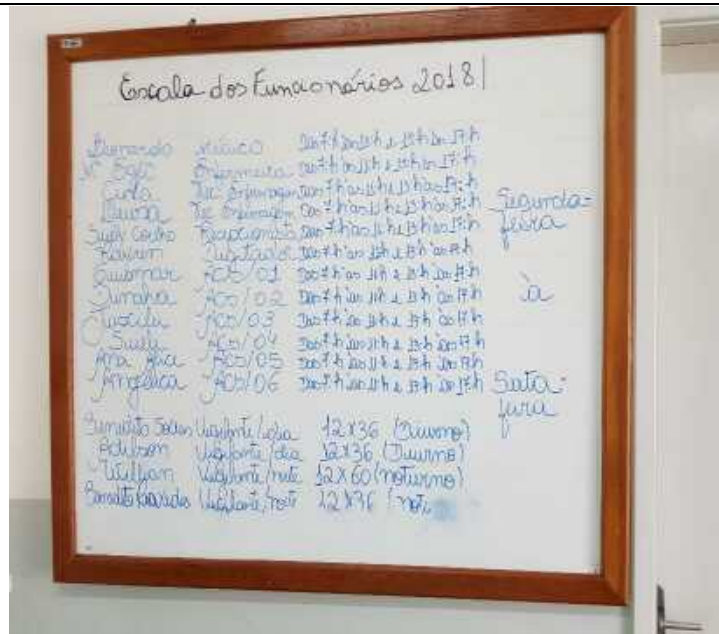 Escala dos Funcionários 2018
Bernardo Médico Das 7h às 11h e 13h às 17h
Enfermeira Das 7h às 11h e 13h às 17:h
Tec Enfermagem Das 7h às 11h e 13h às 17:h
Tec Enfermagem Das 7h às 11h e 13h às 17:h
Suely Coelho Recepcionista Das 7h às 11h e 13h às 17:h
Digitador Das 7h às 11h e 13h às 17h
Guiomar ACS/01 Das 7h às 11h e 13h às 17h
ACS/02 Das 7h às 11h e 13h às 17h
ACS/03 Das 7h às 11h e 13h às 17h
Suely ACS/04 Das 7h às 11h e 13h às 17h
Ana ACS/05 Das 7h às 11h e 13h às 17h
Angélica ACS/06 Das 7h às 11h e 13h às 17h
Segunda-
feira
à
Sexta-
feira
Benedito Vigilante/dia 12x36 (Diurno)
Adilson Vigilante/dia 12x36 (Diurno)
Willian Vigilante/noite 12x60 (noturno)
Benedito Vigilante/noite 12x36